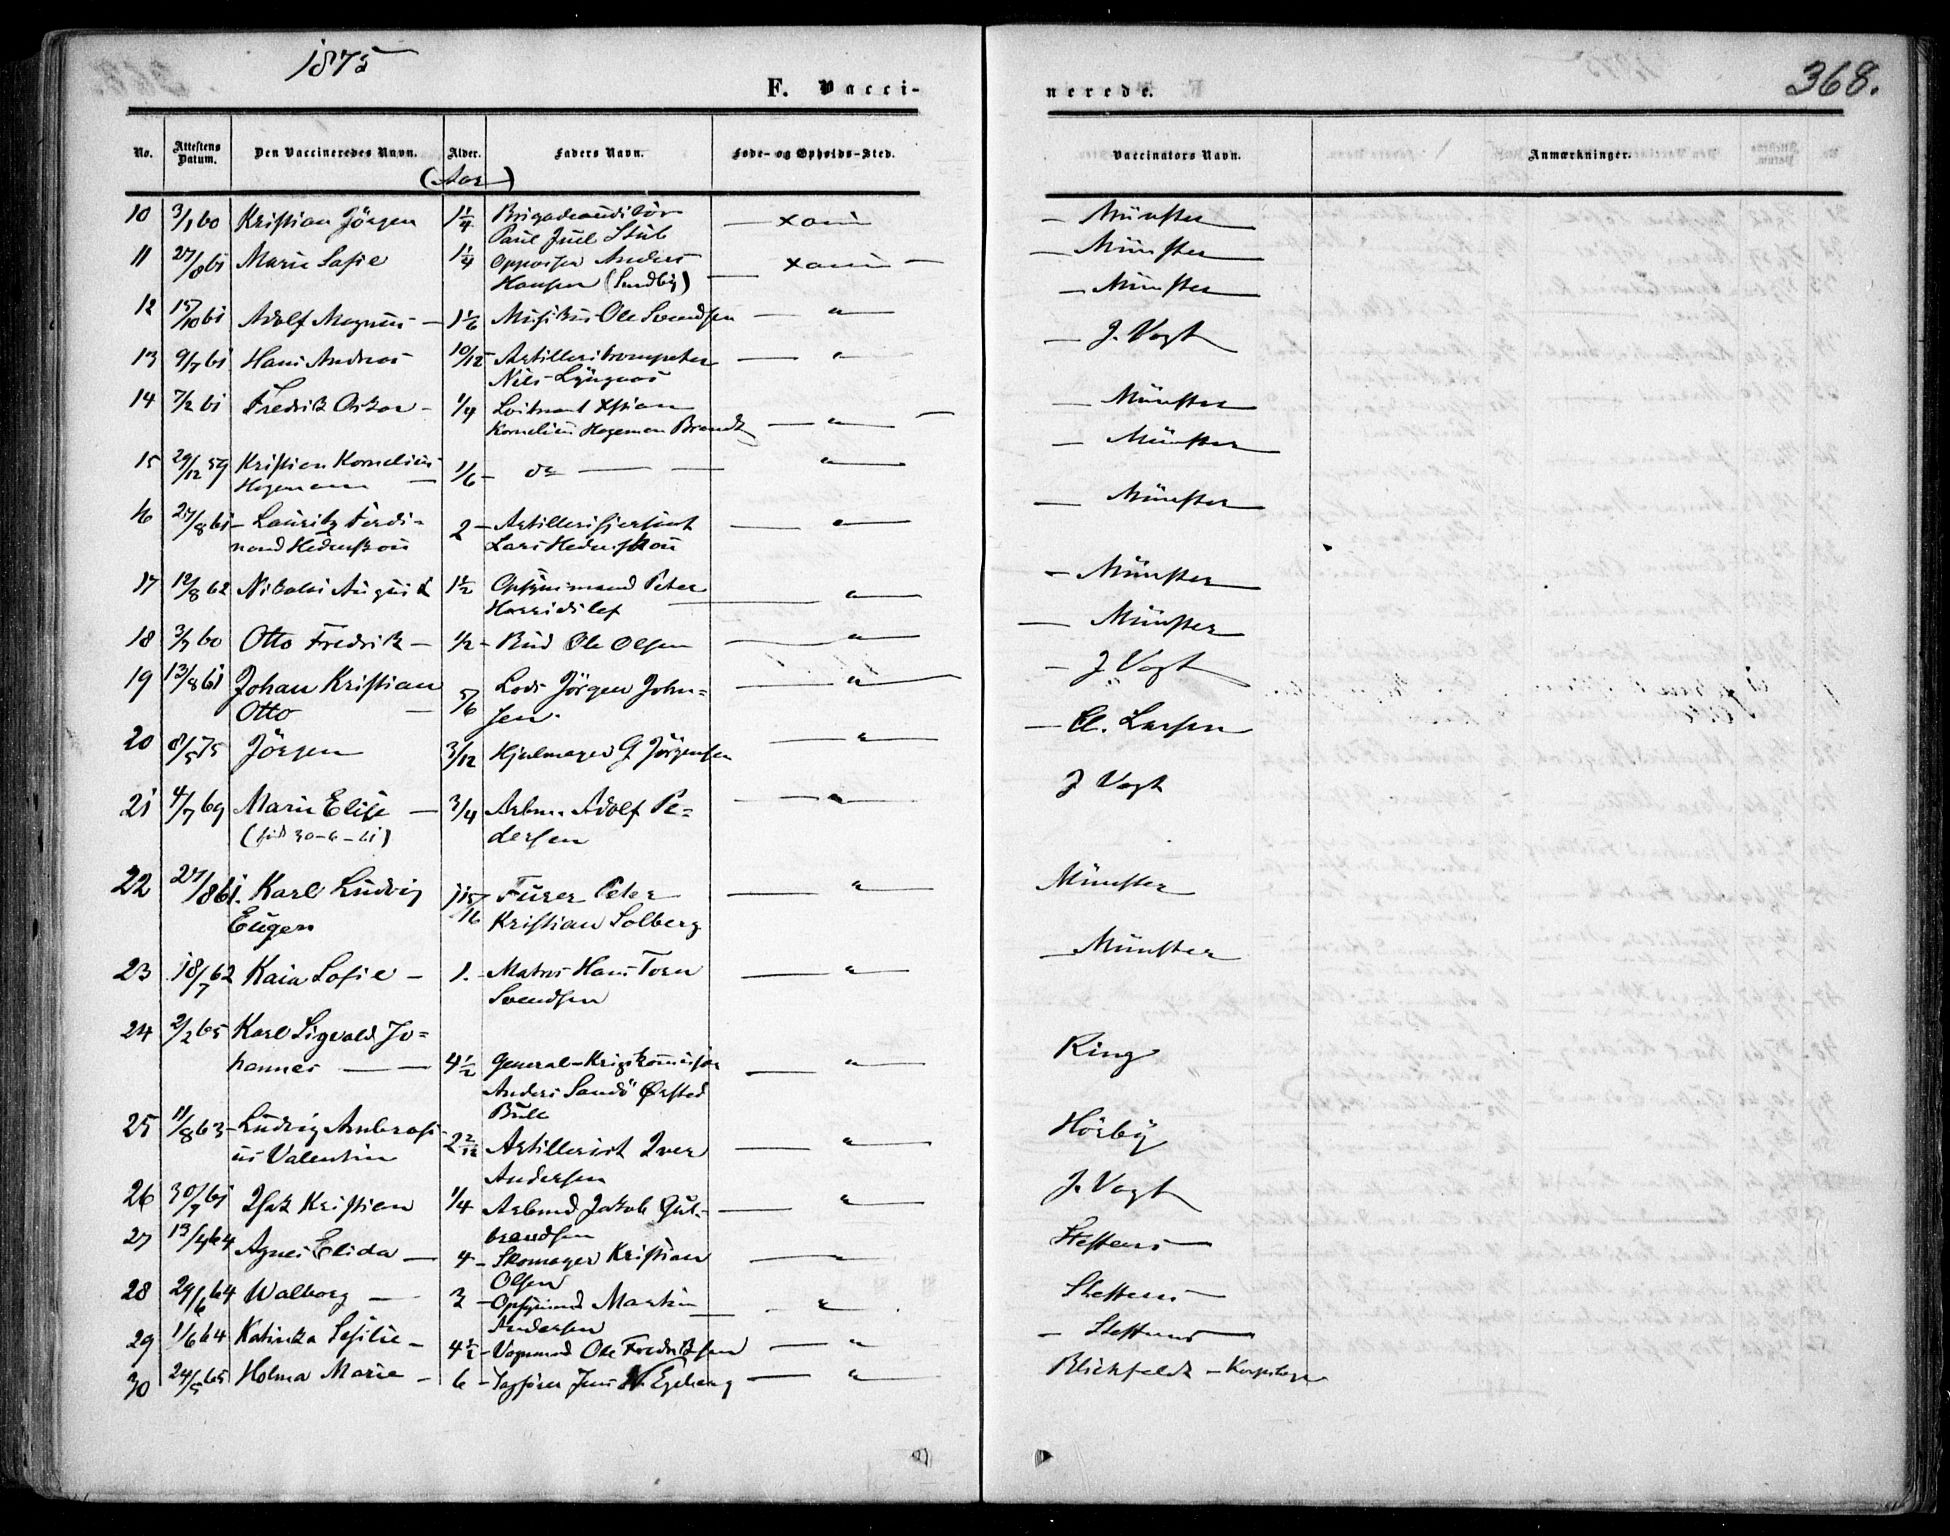 1875
368.
F. Vacci-
nerede.
No. Attestens Datum. Den Vaccineredes Navn. Alder. Faders Navn. Føde- og Opholds-Sted. Vaccinators Navn. Anmærkninger.
(Aar)
10 3/1 60 Kristian Jörgen 1 1/4 Brigadeauditör — Xania — Münster
Paul Juel Stub
11 27/8 61 Marie Sofie 1 1/4 Anders — Xania — Münster
Hansen (Sundby)
12 15/10 61 Adolf Magnus — 1 1/6 Musikus Ole Svendsen — " — — Münster
13 9/7 61 Hans Andreas 10/12 Artilleritrompeter — " — — J. Vogt
Nils Lÿngaas
14 7/2 61 Fredrik Oskar — 1/4 Loitnant Xstian — Münster
Kornelius Hegeman Brandt — " —
15 29/12 59 Kristian Kornelius 1/6 — do — — — " — — Münster
Hegemann —
16 27/8 61 — Lauritz Ferdi- 2 — Artillerisjersant — " — — Münster
nand Hedenskou Lars Hedenskou
17 12/8 62 Nikolai August 1 1/2 Opsÿnsmand Peter — " — — Münster
18 3/3 60 Otto Fredrik — 1/2 — Bud Ole Olsen — " — — Münster
19 13/8 61 Johan Kristian 5/6 Lods Jörgen John- — " — — J Vogt
Otto — sen.
20 8/5 75 Jörgen 3/12 Hjulmager G Jörgensen — " — — Cl. Larsen
21 4/7 69 Marie Elise — 3/4 Arbm. Adolf Pe- — " — J Vogt
(föd 30-6-61) dersen
22 27/8 61. Karl Ludvig 1 15/16 Furer Peter — " — Münster
Eugen Kristian Solberg
23 18/7 62 Kaia Sofie — 1. — Matros Hans Torn — " — — Münster
Svendsen
24 2/2 65 Karl Sigvald Jo-
hannes — — 4 1/2 General-Krigskommisær — " — Ring
Anders Sandö Ørsted
Bull
25 11/8 63 — Ludvig Ambrosi- 2 2/12 Artillerist Iver — " — Hörbÿ
us Valentin Andersen
26 30/7 61 Isak Kristian 1/4 Arbmd Jakob Gul- — " — J. Vogt
brandsen
27 13/4 64 Agnes Elida — 4 — Skomager Kristian — " — Steffens —
Olsen
28 29/6 64 Walborg — 3 — Opsÿnsmd Martin — " — Steffens —
Andersen
29 1/6 64 Katinka Sesilie — 4 1/2 — Vognmd Ole Fredriksen — " — — Steffens —
30 24/5 65 Holma Marie — 6 — Sagförer Jens N. Egeberg — " — Blichfeldt — Korpslæge